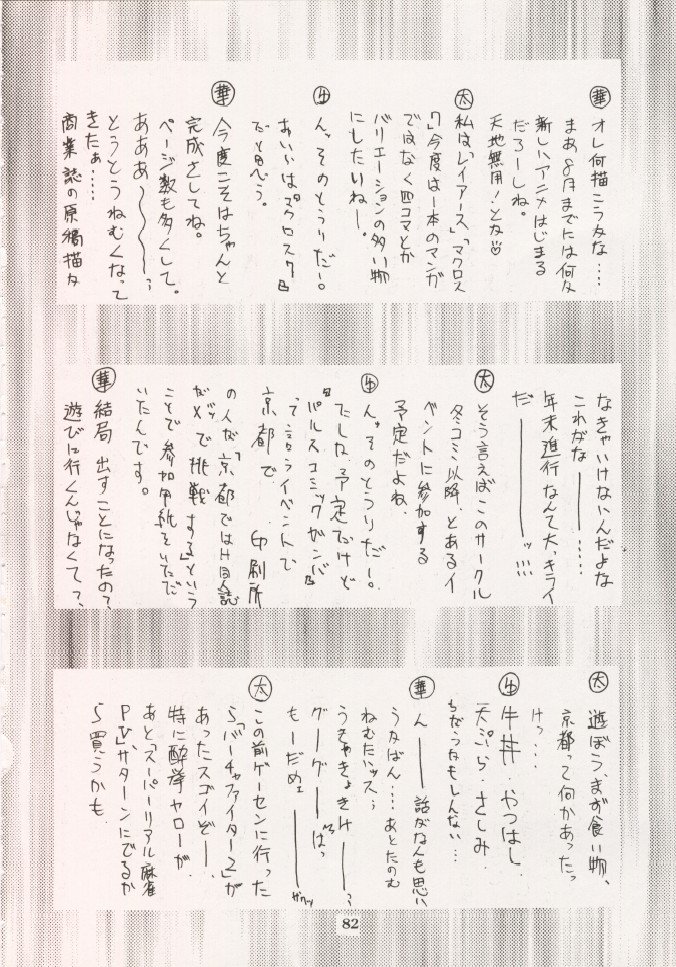 華 オレ何描こうかな‥‥
まあ8月までには何か
新しいアニメはじまる
だろーしね。
天地無用!とか♡
太 私は「レイアース」「マクロス
7」今度は1本のマンガ
ではなく四コマとか
バリエーションの多い物
にしたいねー。
牛 んっそのとうりだー。
あいいは『マクロス7』
だと思う。
華 今度こそはちゃんと
完成さしてね。
ページ数も多くして。
あああ〜〜〜〜う
とうとうねむくなって
きたぁ‥‥‥
商業誌の原稿描か
なきゃいけないんだよな
これがな―――‥‥‥
年末進行なんて大っキライ
だ――――ッ!!!
太 そう言えばこのサークル
冬コミ以降、とあるイ
ベントに参加する
予定だよね、
牛 んっそのとうりだー。
たしか予定だけど
『パルスコミックガンバ』
て言うライベントで
京都で 印刷所
の人が「京都ではH同人誌
がダメで挑戦する」という
ことで参加用紙をいただ
いたんです。
華 結局、出すことになったの?
遊びに行くんじゃなくて?
太 遊ぼう、まず食い物、
京都って何かあったっ
けっ‥‥
牛 牛丼・やつはし、
天ぷら・さしみ、
ちがうかもしんない‥‥
華 ん―――話がなんも思い
うかばん‥‥あとたのむ
ねむたいッスぅ
うきゃきょきけ――――う
グーグ――ぱっ
もーだめェ―――― ガクッ
太 この前ゲーセンに行った
ら「バーチャファイター2」が
あったスゴイぞ―、
特に酔拳ヤローが、
あと「スーパーリアル麻雀
PV」がサターンにでるか
ら買うかも、
82